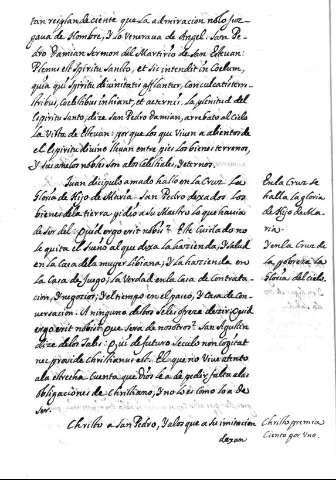 tan resplandeciente que la admiracion no lo juz
gaua de Hombre, y lo veneraua de Angel. San Pe
dro Damian Sermon del Martirio de San Esteuan:
Plenus est Spiritu Sancto, et sic intendit in Coelum,
quia qui Spiritu diuinitatis afflantur, conculcatis terre
stribus, Coelestibus inhiant, et aeternis. La plenitud del
Espiritu Santo, dize San Pedro Damian, arrebato al cielo
la vista de Esteuan: porque los que viuen a alientos de
el Espiritu diuino lleuan entre pies los bienes terrenos,
y sus anelos nobles son a los celestiales, y eternos.
Juan discipulo amado hallo en la Cruz la
Gloria de Hijo de Maria. San Pedro dexados los
bienes de la tierra, pidio a su Maestro lo que hauia
de ser del: Quid ergo erit nobis? Este Cuidado no
le quita el sueño al que dexa la hazienda, y salud
en la Casa de la muger liuiana; y la hazienda en
la Casa de juego; la Verdad en la Casa de Contrata-
cion, y negocios; y el tiempo en el paseo, y Casa de con-
uersacion. A ninguno destos se les ofreze dezir, quid
ergo erit nobis? que sera de nosotros? San Agustin
dize de los tales: Qui de futuro seculo non cogitat
nec proinde Christianus est. El que no viue atento
a la estrecha cuenta que Dios le a de pedir, falta a las
obligaciones de Christiano, y no lo es como lo a de
ser.
Christo a San Pedro, y a los que a su imitacion
dexan
En la Cruz se
halla la gloria
de Hijo de Ma
ria.
Y en la Cruz de
la pobreza la
Gloria del cielo.
Christo premia
Ciento por uno.